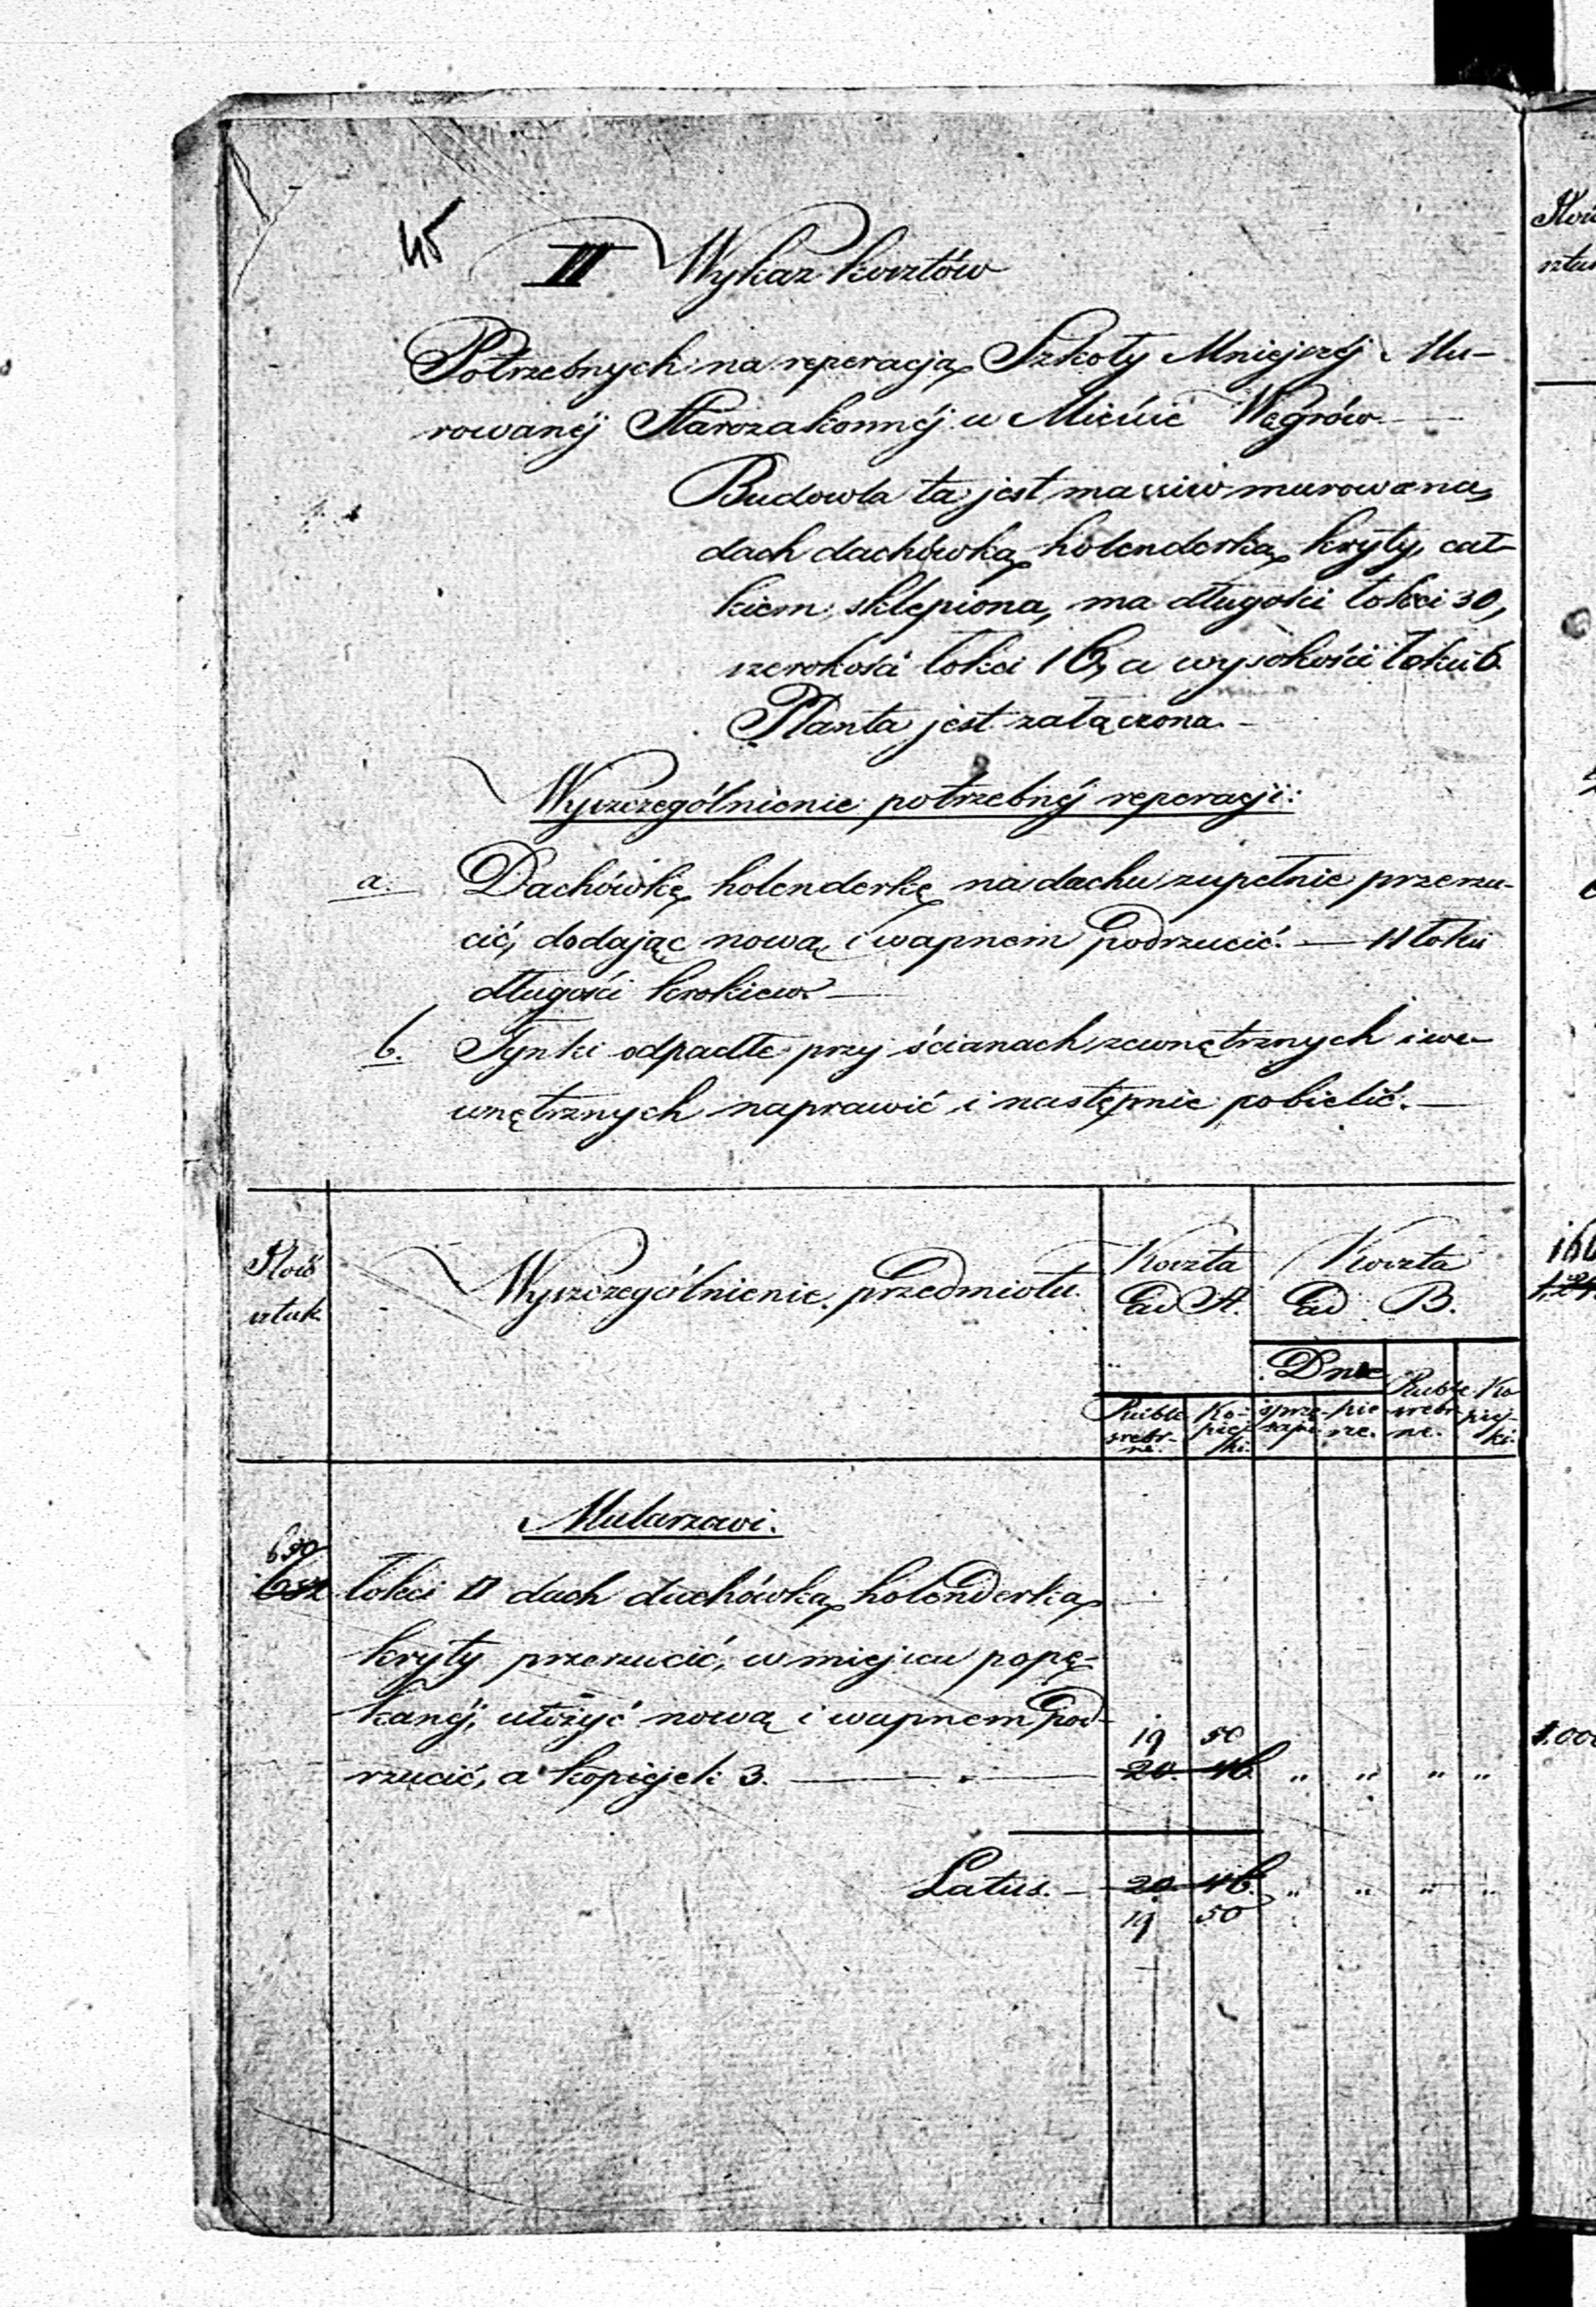 45
III Wykaz kosztów
Potrzebnych na reperacją Szkoły Mniejszéj Mu-
rowanéj Starozakonnéj w Mieście Węgrów
Budowla ta jest massiw murowana,
dach dachówką holenderką kryty, cał-
kiem sklepiona, ma długości łokci 30,
szerokości łokci 16, a wysokości łokci 6.
Planta jest załączona.
Wyszczególnienie potrzebnéj reperacji:
a. Dachówkę holenderkę na dachu zupełnie przerzu-
cić, dodając nową i wapnem podrzucić. — 11 łokci
długości krokiew. —
b. Tynki odpadłe przy ścianach zewnętrznych i we-
wnętrznych naprawić i następnie pobielić. —
Ilość sztuk
Wyszczególnienie przedmiotu.
Koszta Ad A.
Koszta Ad B.
Dnie
Ruble srebr-ne. Ko-piej-ki. sprzę-żajne pie-sze. Ruble srebr-ne. Ko-piej-ki.
Mularzowi.
650
682 łokci □ dach dachówką holenderką
kryty przerzucić, w miejscu popę-
kanéj, ułożyć nową i wapnem pod-
19 50
rzucić, a kopiejek 3. — 20. 46. " " " "
Latus. — 20. 46. " " " "
19 50